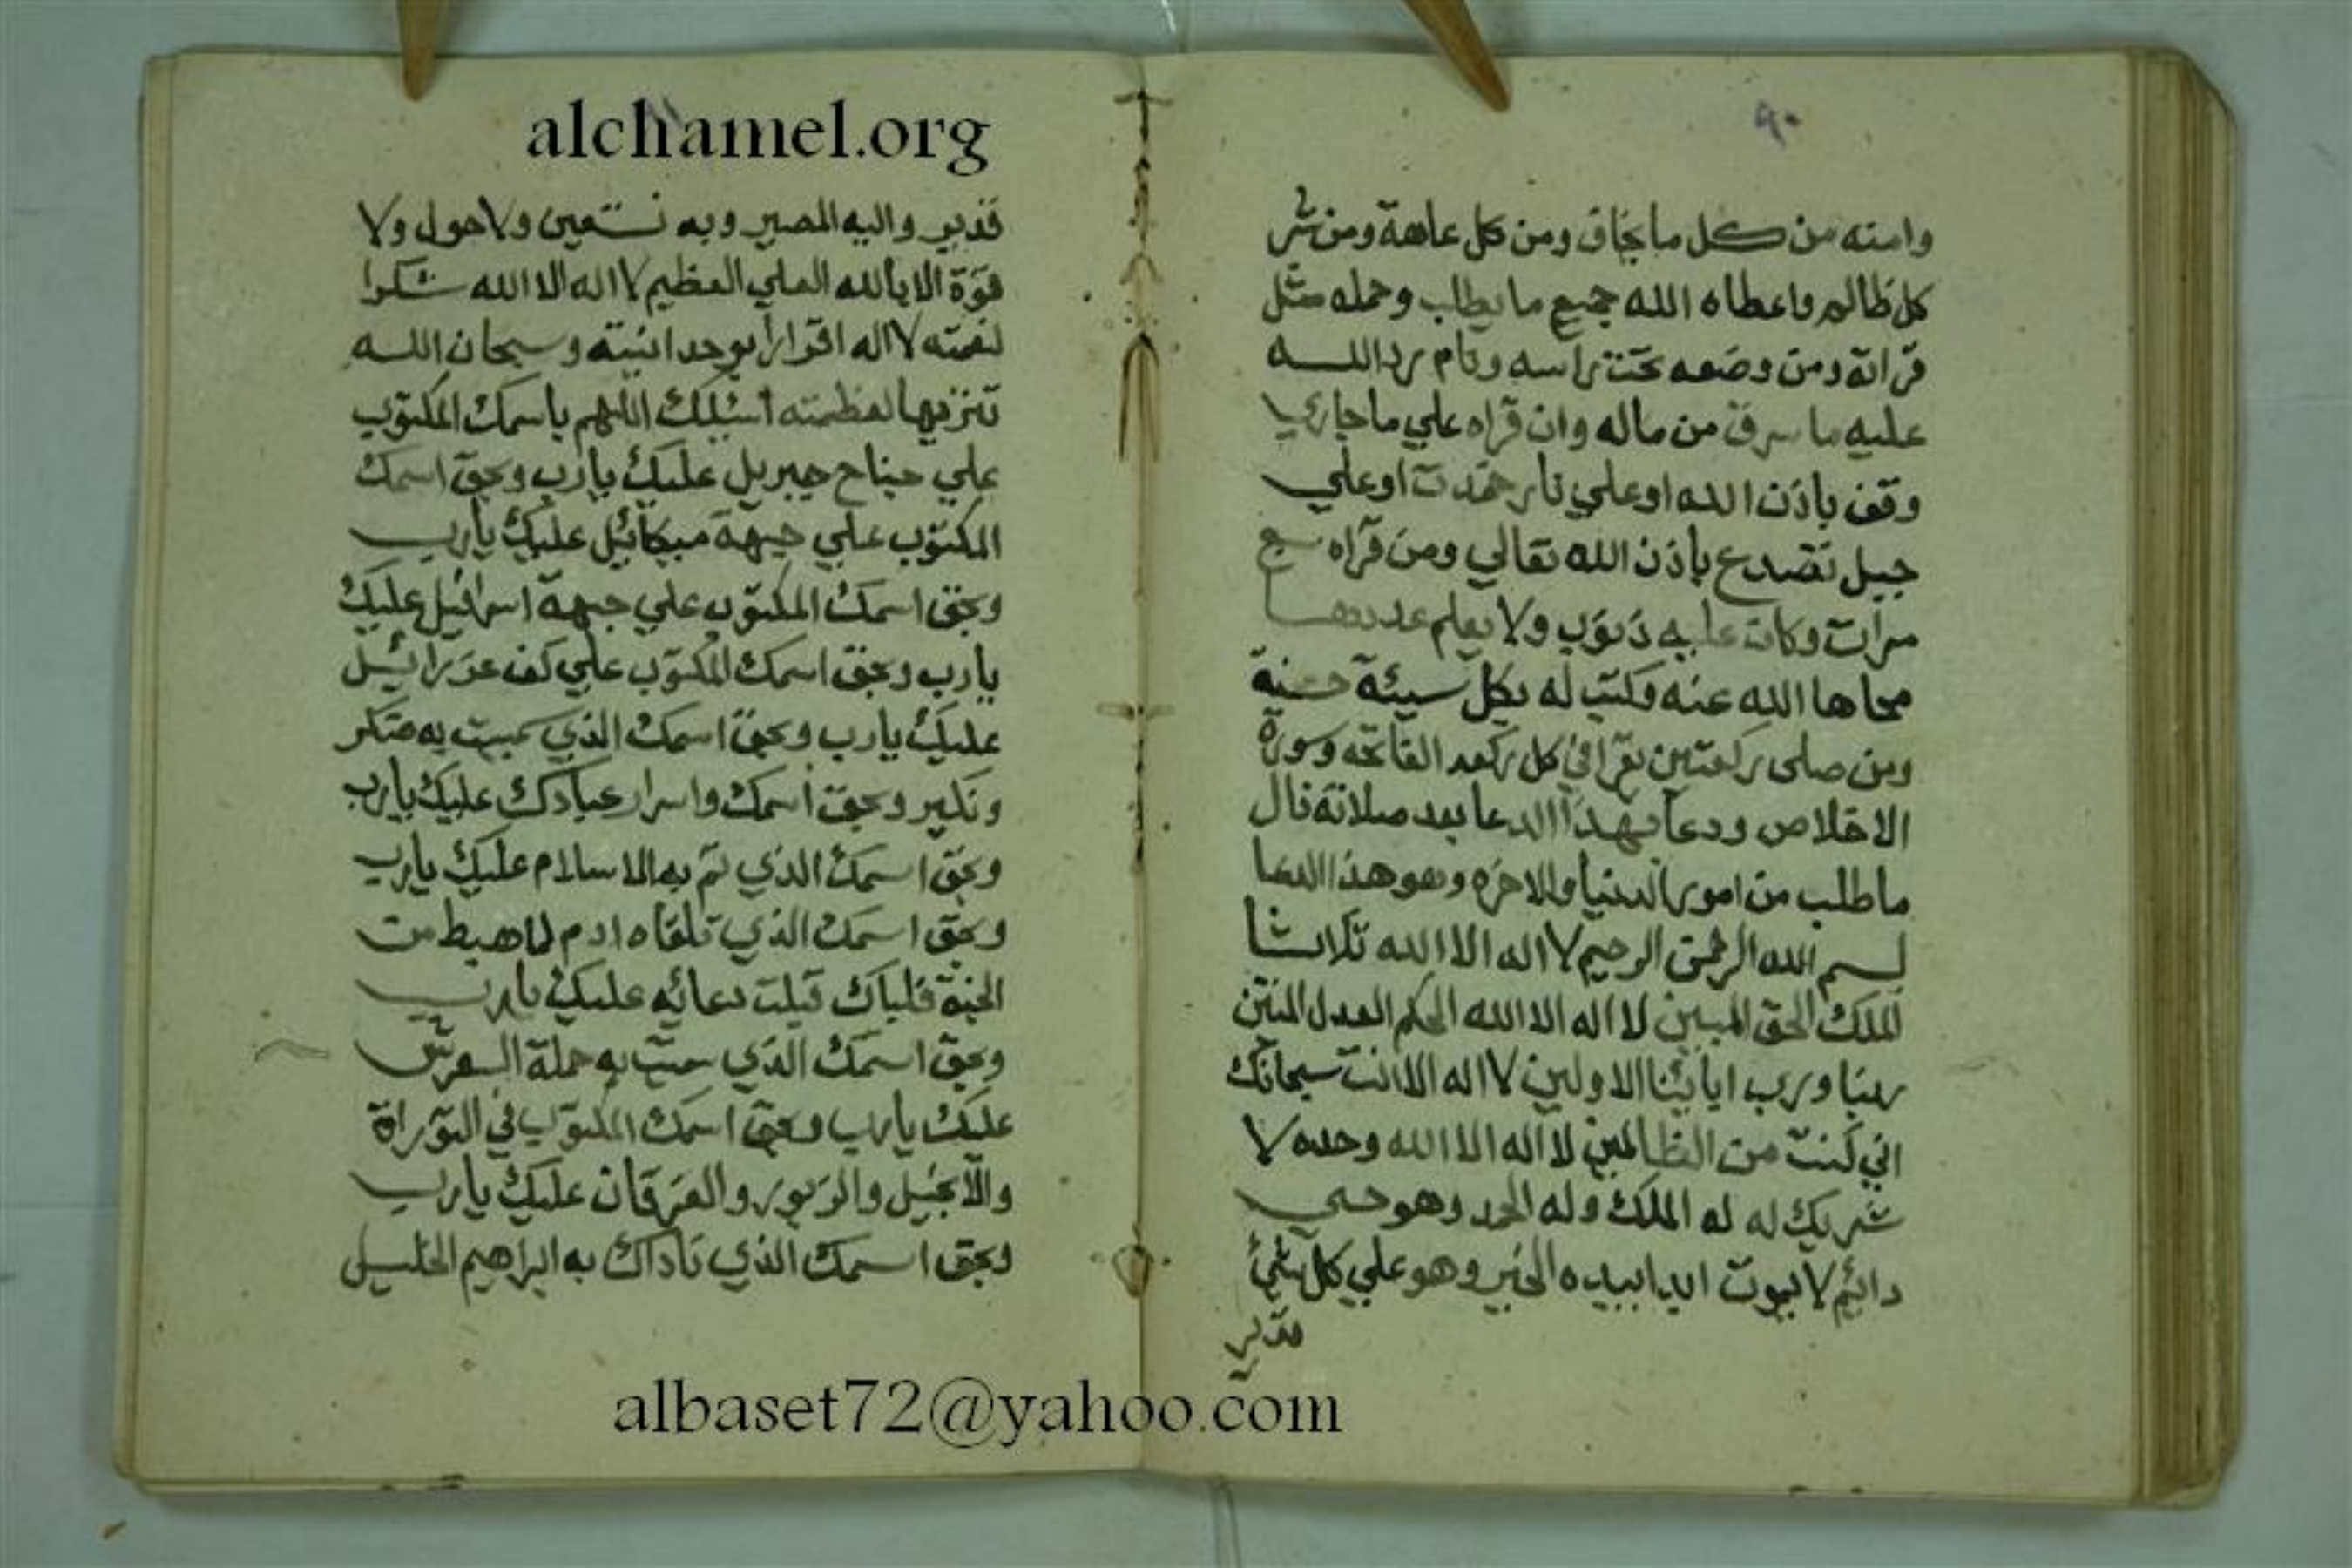 ٩٠
وامنه من كل ما يخاف ومن كل عاهة ومن شر
كل ظالم واعطاه الله جميع ما يطلب وحمله مثل
قراته ومن وضعه تحت راسه ونام رد الله
عليه ما سرق من ماله وان قراه علي ما جاري
وقف باذن الله او علي نار خمدت او علي
جبل تصدع باذن الله تعالي ومن قراه سبع
مرات وكانت عليه ذنوب ولا يعلم عددها
محاها الله عنه وكتب له بكل سيئة حسنة
ومن صلى ركعتين يقرا في كل ركعه الفاتحه وسورة
الاخلاص ودعا بهذا الدعا بعد صلاته نال
ما طلب من امور الدنيا والاخره وهو هذا الدعا
بسم الله الرحمن الرحيم لا اله الا الله ثلاثا
الملك الحق المبين لا اله الا الله الحكم العدل المتين
ربنا ورب ابائنا الاولين لا اله الا انت سبحانك
اني كنت من الظالمين لا اله الا الله وحده لا
شريك له له الملك وله الحمد وهو حي
دائم لا يموت ابدا بيده الخير وهو علي كل شئ
قدير
alchamel.org
قدير واليه المصير وبه نستعين ولا حول ولا
قوة الا بالله العلي العظيم لا اله الا الله شكرا
لنعمته لا اله اقرارا بوحدانيته وسبحان الله
تنزيها لعظمته اسئلك اللهم باسمك المكتوب
علي جناح جبريل عليك يارب وبحق اسمك
المكتوب علي جبهة ميكائيل عليك يارب
وبحق اسمك المكتوب علي جبهة اسرافيل عليك
يارب وبحق اسمك المكتوب علي كف عزرائيل
عليك يارب وبحق اسمك الذي سميت به منكر
ونكير وبحق اسمك واسرار عبادك عليك يارب
وبحق اسمك الذي تم به الاسلام عليك يارب
وبحق اسمك الذي تلقاه ادم لما هبط من
الجنة فلباك قبلت دعائه عليك يارب
وبحق اسمك الذي به حملة العرش
عليك يارب وبحق اسمك المكتوب في التوراة
والانجيل والزبور والفرقان عليك يارب
وبحق اسمك الذي ناداك به ابراهيم الخليل
albaset72@yahoo.com